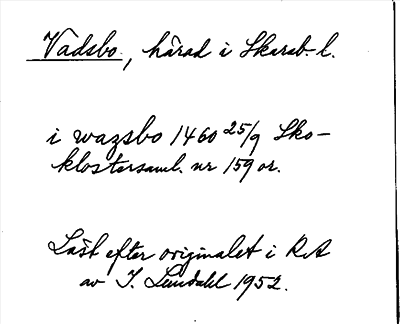 Vadsbo, härad i Skarab. l.
i wazsbo 1460 25/9 Sko-
klostersaml. nr 159 or.
Läst efter originalet i RA
av I. Lundahl 1952.